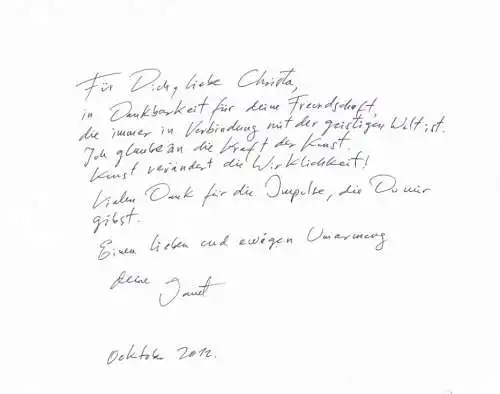 Für Dich, liebe Christa,
in Dankbarkeit für deine Freundschaft,
die immer in Verbindung mit der geistigen Welt ist.
Ich glaube an die Kraft der Kunst.
Kunst verändert die Wirklichkeit!
Vielen Dank für die Impulse, die Du mir
gibst.
Einen lieben und ewigen Umarmung
deine
Octtober 2012.